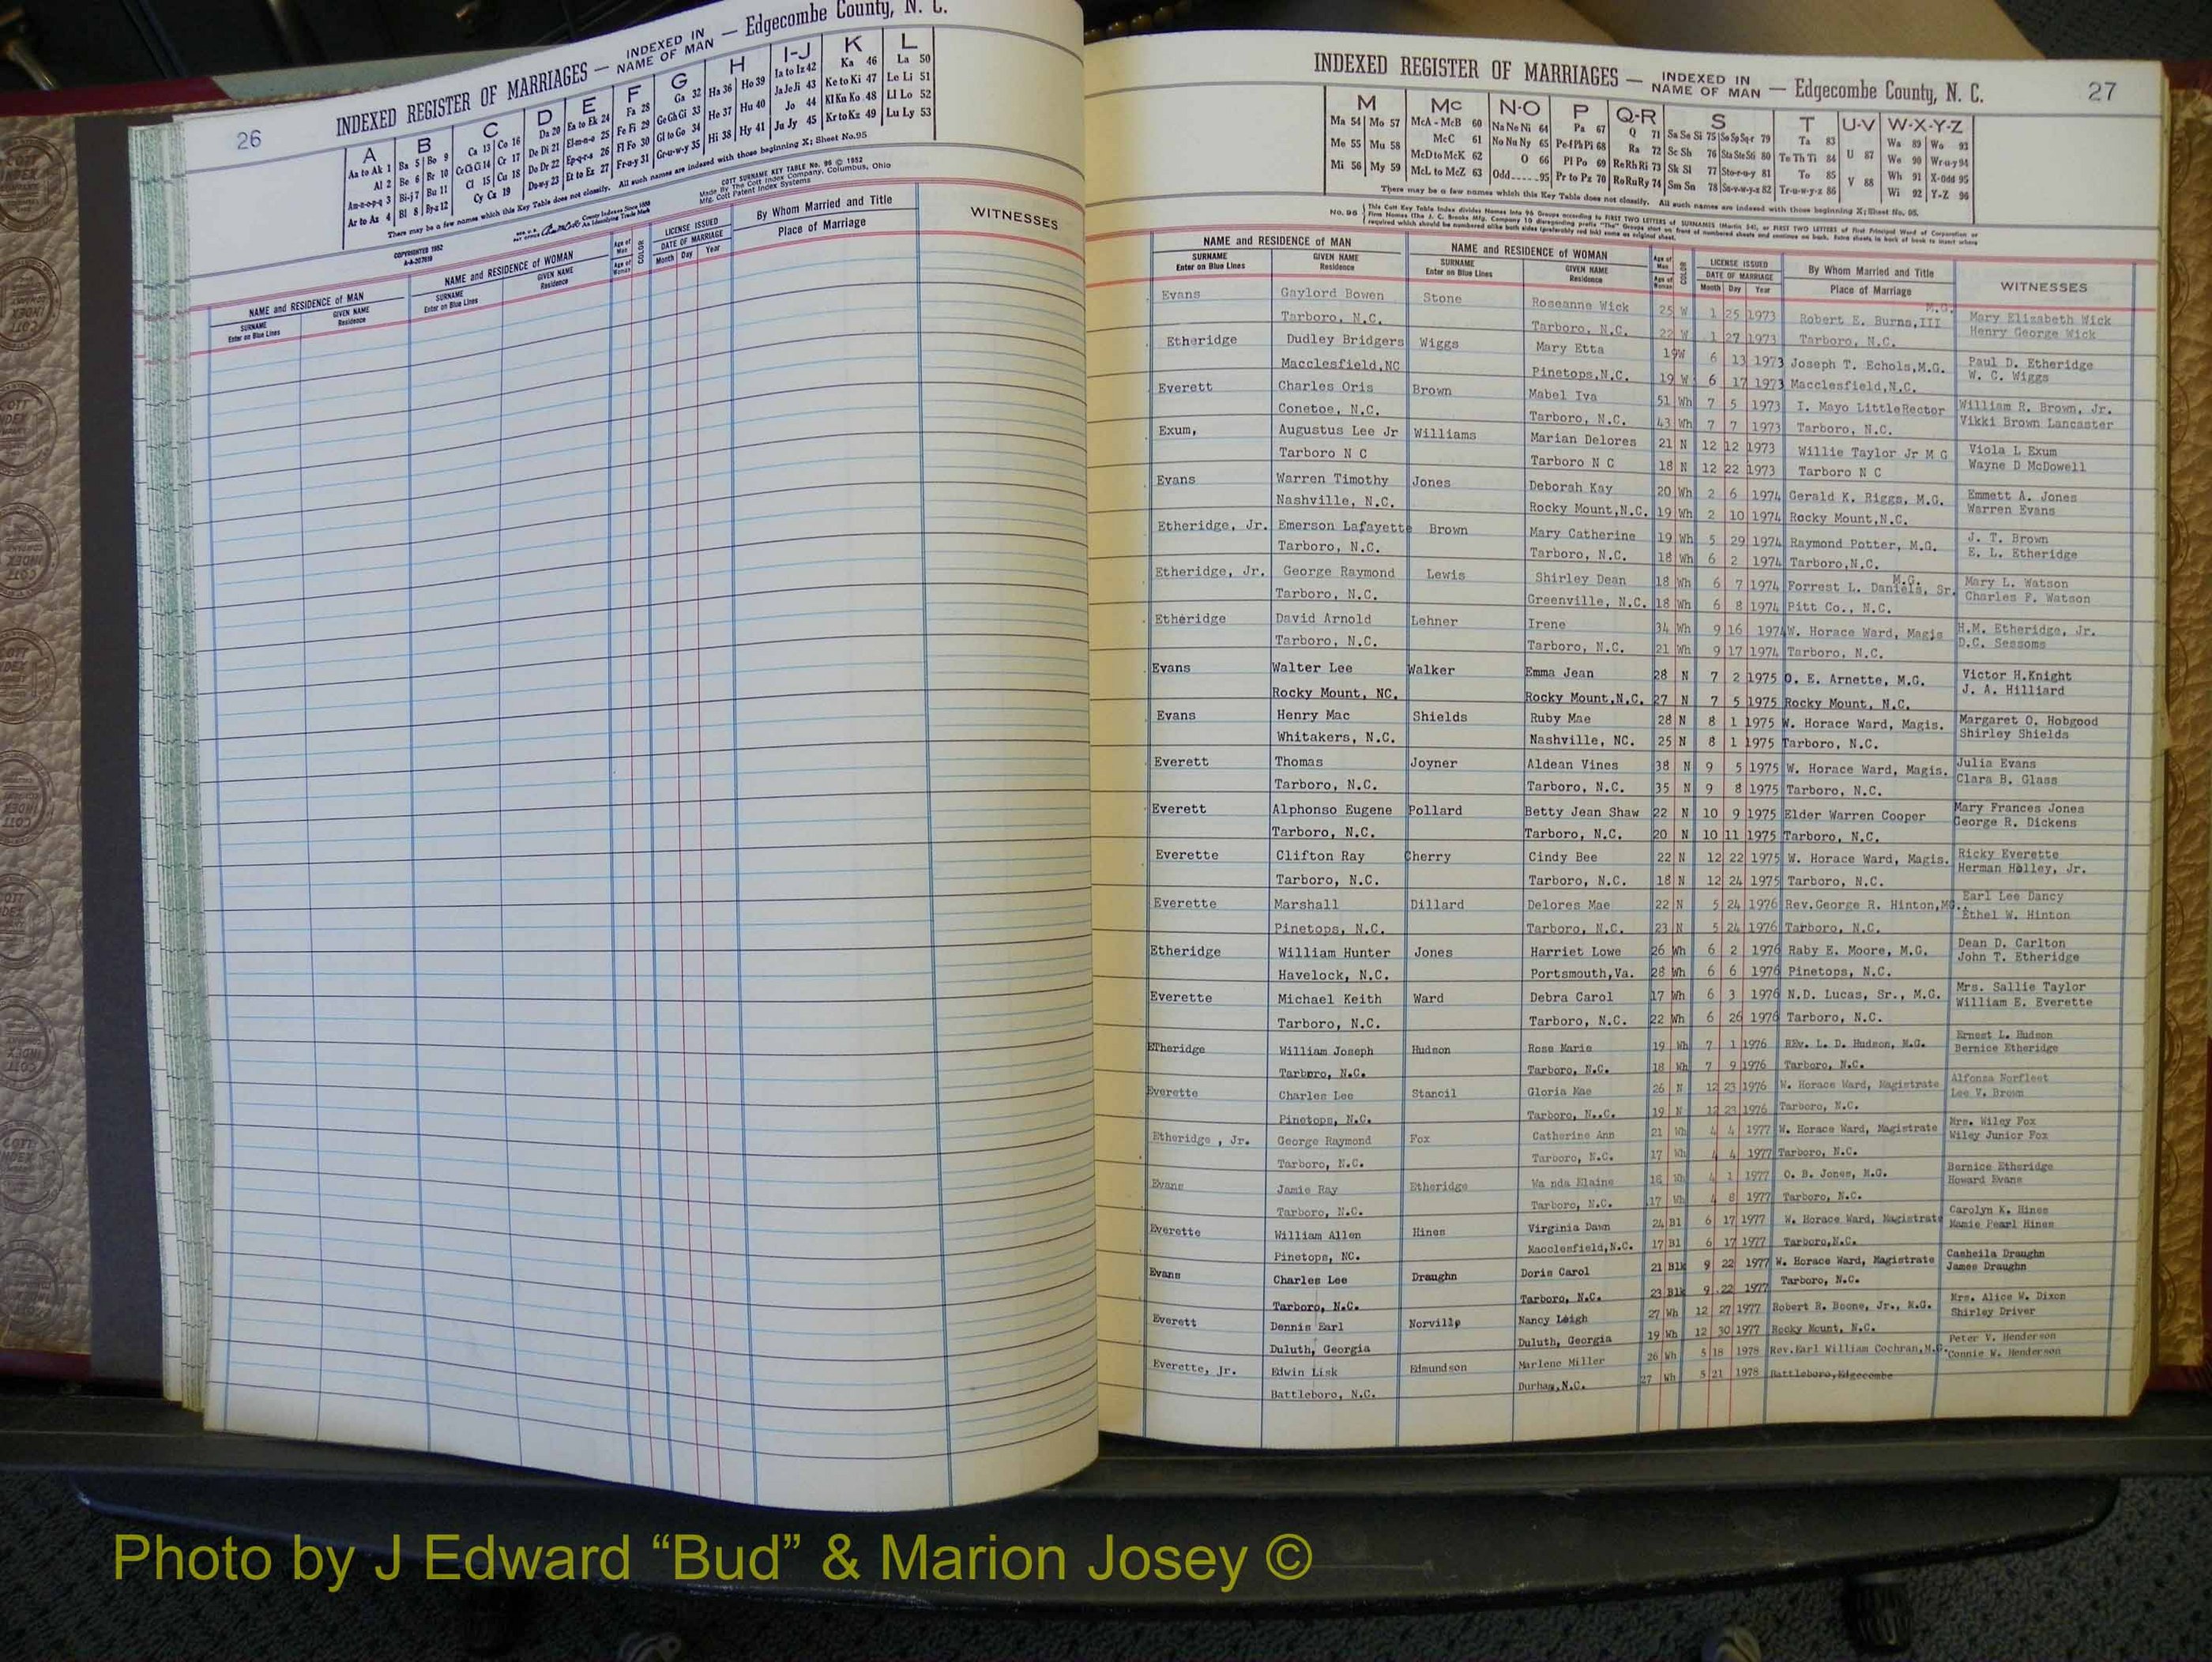 26
INDEXED REGISTER OF MARRIAGES — INDEXED IN NAME OF MAN — Edgecombe County, N. C.
A B C D E F G H I-J K L
Aa to Ak 1 Ba 5 Bo 9 Ca 13 Co 16 Da 20 Ea to Ek 24 Fa 28 Ga 32 Ha 36 Ho 39 Ia to Iz 42 Ka 46 La 50
Al 2 Be 6 Br 10 Ce Ch Ci 14 Cr 17 De Di 21 El-m-n 25 Fe Fi 29 Ge Gh Gi 33 He 37 Hu 40 Ja Je Ji 43 Ke to Ki 47 Le Li 51
Am-n-o-p-q 3 Bi-j 7 Bu 11 Cl 15 Cu 18 Do Dr 22 Ep-q-r-s 26 Fl Fo 30 Gl to Go 34 Hi 38 Hy 41 Jo 44 Kl Kn Ko 48 Ll Lo 52
Ar to Az 4 Bl 8 By-z 12 Cy Cz 19 Du-w-y 23 Et to Ez 27 Fr-u-y 31 Gr-u-w-y 35 Ju Jy 45 Kr to Kz 49 Lu Ly 53
There may be a few names which this Key Table does not classify. All such names are indexed with those beginning X; Sheet No. 95
COPYRIGHTED 1952
COTT SURNAME KEY TABLE No. 96 © 1952
Made By The Cott Index Company, Columbus, Ohio
Mfg. Cott Patent Index Systems
NAME and RESIDENCE of MAN NAME and RESIDENCE of WOMAN Age of Man COLOR LICENSE ISSUED By Whom Married and Title WITNESSES
SURNAME Enter on Blue Lines GIVEN NAME Residence SURNAME Enter on Blue Lines GIVEN NAME Residence Age of Woman DATE OF MARRIAGE Month Day Year Place of Marriage
INDEXED REGISTER OF MARRIAGES — INDEXED IN NAME OF MAN — Edgecombe County, N. C. 27
M Mc N-O P Q-R S T U-V W-X-Y-Z
Ma 54 Mo 57 McA - McB 60 Na Ne Ni 64 Pa 67 Q 71 Sa Se Si 75 So Sp Sq-r 79 Ta 83 U 87 Wa 89 Wo 93
Me 55 Mu 58 McC 61 No Nu Ny 65 Pe-f Ph Pi 68 Ra 72 Sc Sh 76 Sta Ste Sti 80 Te Th Ti 84 V 88 We 90 Wr-u-y 94
Mi 56 My 59 McD to McK 62 O 66 Pl Po 69 Re Rh Ri 73 Sk Sl 77 Sto-r-u-y 81 To 85 Wh 91 X-Odd 95
McL to McZ 63 Odd.....95 Pr to Pz 70 Ro Ru Ry 74 Sm Sn 78 Su-v-w-y-z 82 Tr-u-w-y-z 86 Wi 92 Y-Z 96
There may be a few names which this Key Table does not classify. All such names are indexed with those beginning X; Sheet No. 95.
NAME and RESIDENCE of MAN NAME and RESIDENCE of WOMAN Age of Man COLOR LICENSE ISSUED By Whom Married and Title WITNESSES
SURNAME Enter on Blue Lines GIVEN NAME Residence SURNAME Enter on Blue Lines GIVEN NAME Residence Age of Woman DATE OF MARRIAGE Month Day Year Place of Marriage
Evans Gaylord Bowen Stone Roseanne Wick 25 W 1 25 1973 Robert E. Burns,III M.G. Mary Elizabeth Wick
Tarboro, N.C. Tarboro, N.C. 22 W 1 27 1973 Tarboro, N.C. Henry George Wick
Etheridge Dudley Bridgers Wiggs Mary Etta 19W 6 13 1973 Joseph T. Echols,M.G. Paul D. Etheridge
Macclesfield,NC Pinetops,N.C. 19 W 6 17 1973 Macclesfield,N.C. W. C. Wiggs
Everett Charles Oris Brown Mabel Iva 51 Wh 7 5 1973 I. Mayo LittleRector William R. Brown, Jr.
Conetoe, N.C. Tarboro, N.C. 43 Wh 7 7 1973 Tarboro, N.C. Vikki Brown Lancaster
Exum, Augustus Lee Jr Williams Marian Delores 21 N 12 12 1973 Willie Taylor Jr M G Viola L Exum
Tarboro N C Tarboro N C 18 N 12 22 1973 Tarboro N C Wayne D McDowell
Evans Warren Timothy Jones Deborah Kay 20 Wh 2 6 1974 Gerald K. Riggs, M.G. Emmett A. Jones
Nashville, N.C. Rocky Mount,N.C. 19 Wh 2 10 1974 Rocky Mount,N.C. Warren Evans
Etheridge, Jr. Emerson Lafayette Brown Mary Catherine 19 Wh 5 29 1974 Raymond Potter, M.G. J. T. Brown
Tarboro, N.C. Tarboro, N.C. 18 Wh 6 2 1974 Tarboro,N.C. E. L. Etheridge
Etheridge, Jr. George Raymond Lewis Shirley Dean 18 Wh 6 7 1974 Forrest L. Daniels, Sr. M.G. Mary L. Watson
Tarboro, N.C. Greenville, N.C. 18 Wh 6 8 1974 Pitt Co., N.C. Charles F. Watson
Etheridge David Arnold Lehner Irene 34 Wh 9 16 1974 W. Horace Ward, Magis H.M. Etheridge, Jr.
Tarboro, N.C. Tarboro, N.C. 21 Wh 9 17 1974 Tarboro, N.C. D.C. Sessoms
Evans Walter Lee Walker Emma Jean 28 N 7 2 1975 O. E. Arnette, M.G. Victor H.Knight
Rocky Mount, NC. Rocky Mount,N.C. 27 N 7 5 1975 Rocky Mount, N.C. J. A. Hilliard
Evans Henry Mac Shields Ruby Mae 28 N 8 1 1975 W. Horace Ward, Magis. Margaret O. Hobgood
Whitakers, N.C. Nashville, NC. 25 N 8 1 1975 Tarboro, N.C. Shirley Shields
Everett Thomas Joyner Aldean Vines 38 N 9 5 1975 W. Horace Ward, Magis. Julia Evans
Tarboro, N.C. Tarboro, N.C. 35 N 9 8 1975 Tarboro, N.C. Clara B. Glass
Everett Alphonso Eugene Pollard Betty Jean Shaw 22 N 10 9 1975 Elder Warren Cooper Mary Frances Jones
Tarboro, N.C. Tarboro, N.C. 20 N 10 11 1975 Tarboro, N.C. George R. Dickens
Everette Clifton Ray Cherry Cindy Bee 22 N 12 22 1975 W. Horace Ward, Magis. Ricky Everette
Tarboro, N.C. Tarboro, N.C. 18 N 12 24 1975 Tarboro, N.C. Herman Holley, Jr.
Everette Marshall Dillard Delores Mae 22 N 5 24 1976 Rev.George R. Hinton,MG. Earl Lee Dancy
Pinetops, N.C. Tarboro, N.C. 23 N 5 24 1976 Tarboro, N.C. Ethel W. Hinton
Etheridge William Hunter Jones Harriet Lowe 26 Wh 6 2 1976 Raby E. Moore, M.G. Dean D. Carlton
Havelock, N.C. Portsmouth,Va. 28 Wh 6 6 1976 Pinetops, N.C. John T. Etheridge
Everette Michael Keith Ward Debra Carol 17 Wh 6 3 1976 N.D. Lucas, Sr., M.G. Mrs. Sallie Taylor
Tarboro, N.C. Tarboro, N.C. 22 Wh 6 26 1976 Tarboro, N.C. William E. Everette
EThèridge William Joseph Hudson Rose Marie 19 Wh 7 1 1976 REv. L. D. Hudson, M.G. Ernest L. Hudson
Tarboro, N.C. Tarboro, N.C. 18 Wh 7 9 1976 Tarboro, N.C. Bernice Etheridge
Everette Charles Lee Stancil Gloria Mae 26 N 12 23 1976 W. Horace Ward, Magistrate Alfonza Norfleet
Pinetops, N.C. Tarboro, N..C. 19 N 12 23 1976 Tarboro, N.C. Lee V. Brown
Etheridge , Jr. George Raymond Fox Catherine Ann 21 Wh 4 4 1977 W. Horace Ward, Magistrate Mrs. Wiley Fox
Tarboro, N.C. Tarboro, N.C. 17 Wh 4 4 1977 Tarboro, N.C. Wiley Junior Fox
Evans Jamie Ray Etheridge Wa nda Elaine 18 Wh 4 1 1977 O. B. Jones, M.G. Bernice Etheridge
Tarboro, N.C. Tarboro, N.C. 17 Wh 4 8 1977 Tarboro, N.C. Howard Evans
Everette William Allen Hines Virginia Dawn 24 Bl 6 17 1977 W. Horace Ward, Magistrate Carolyn K. Hines
Pinetops, NC. Macclesfield,N.C. 17 Bl 6 17 1977 Tarboro,N.C. Mamie Pearl Hines
Evans Charles Lee Draughn Doris Carol 21 Blk 9 22 1977 W. Horace Ward, Magistrate Casheila Draughn
Tarboro, N.C. Tarboro, N.C. 23 Blk 9 22 1977 Tarboro, N.C. James Draughn
Everett Dennis Earl Norville Nancy Leigh 27 Wh 12 27 1977 Robert R. Boone, Jr., M.G. Mrs. Alice W. Dixon
Duluth, Georgia Duluth, Georgia 19 Wh 12 30 1977 Rocky Mount, N.C. Shirley Driver
Everette, Jr. Edwin Lisk Edmundson Marlene Miller 26 Wh 5 18 1978 Rev.Earl William Cochran,M.G. Peter V. Henderson
Battleboro, N.C. Durham,N.C. 27 Wh 5 21 1978 Battleboro,Edgecombe Connie W. Henderson
Photo by J Edward “Bud” & Marion Josey ©